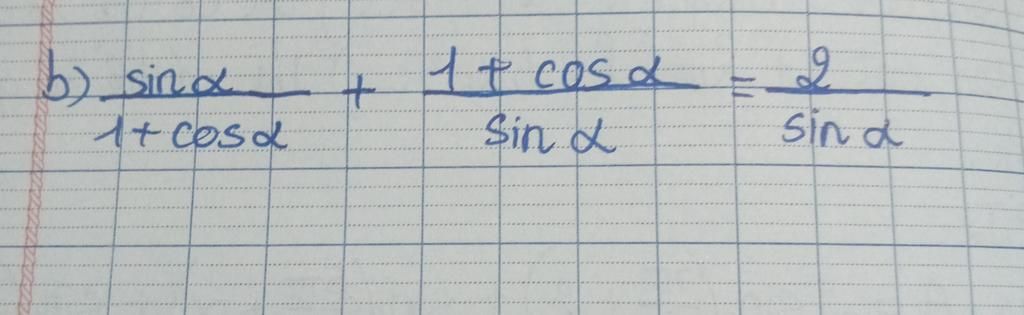 b) sinα/(1+cosα) + (1+cosα)/sinα = 2/sinα